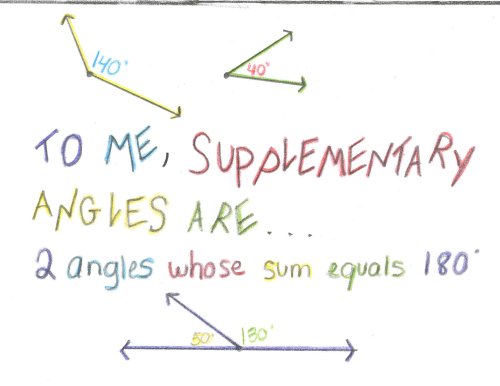 140° 40°
TO ME, SUPPLEMENTARY
ANGLES ARE....
2 angles whose sum equals 180°
50° 130°